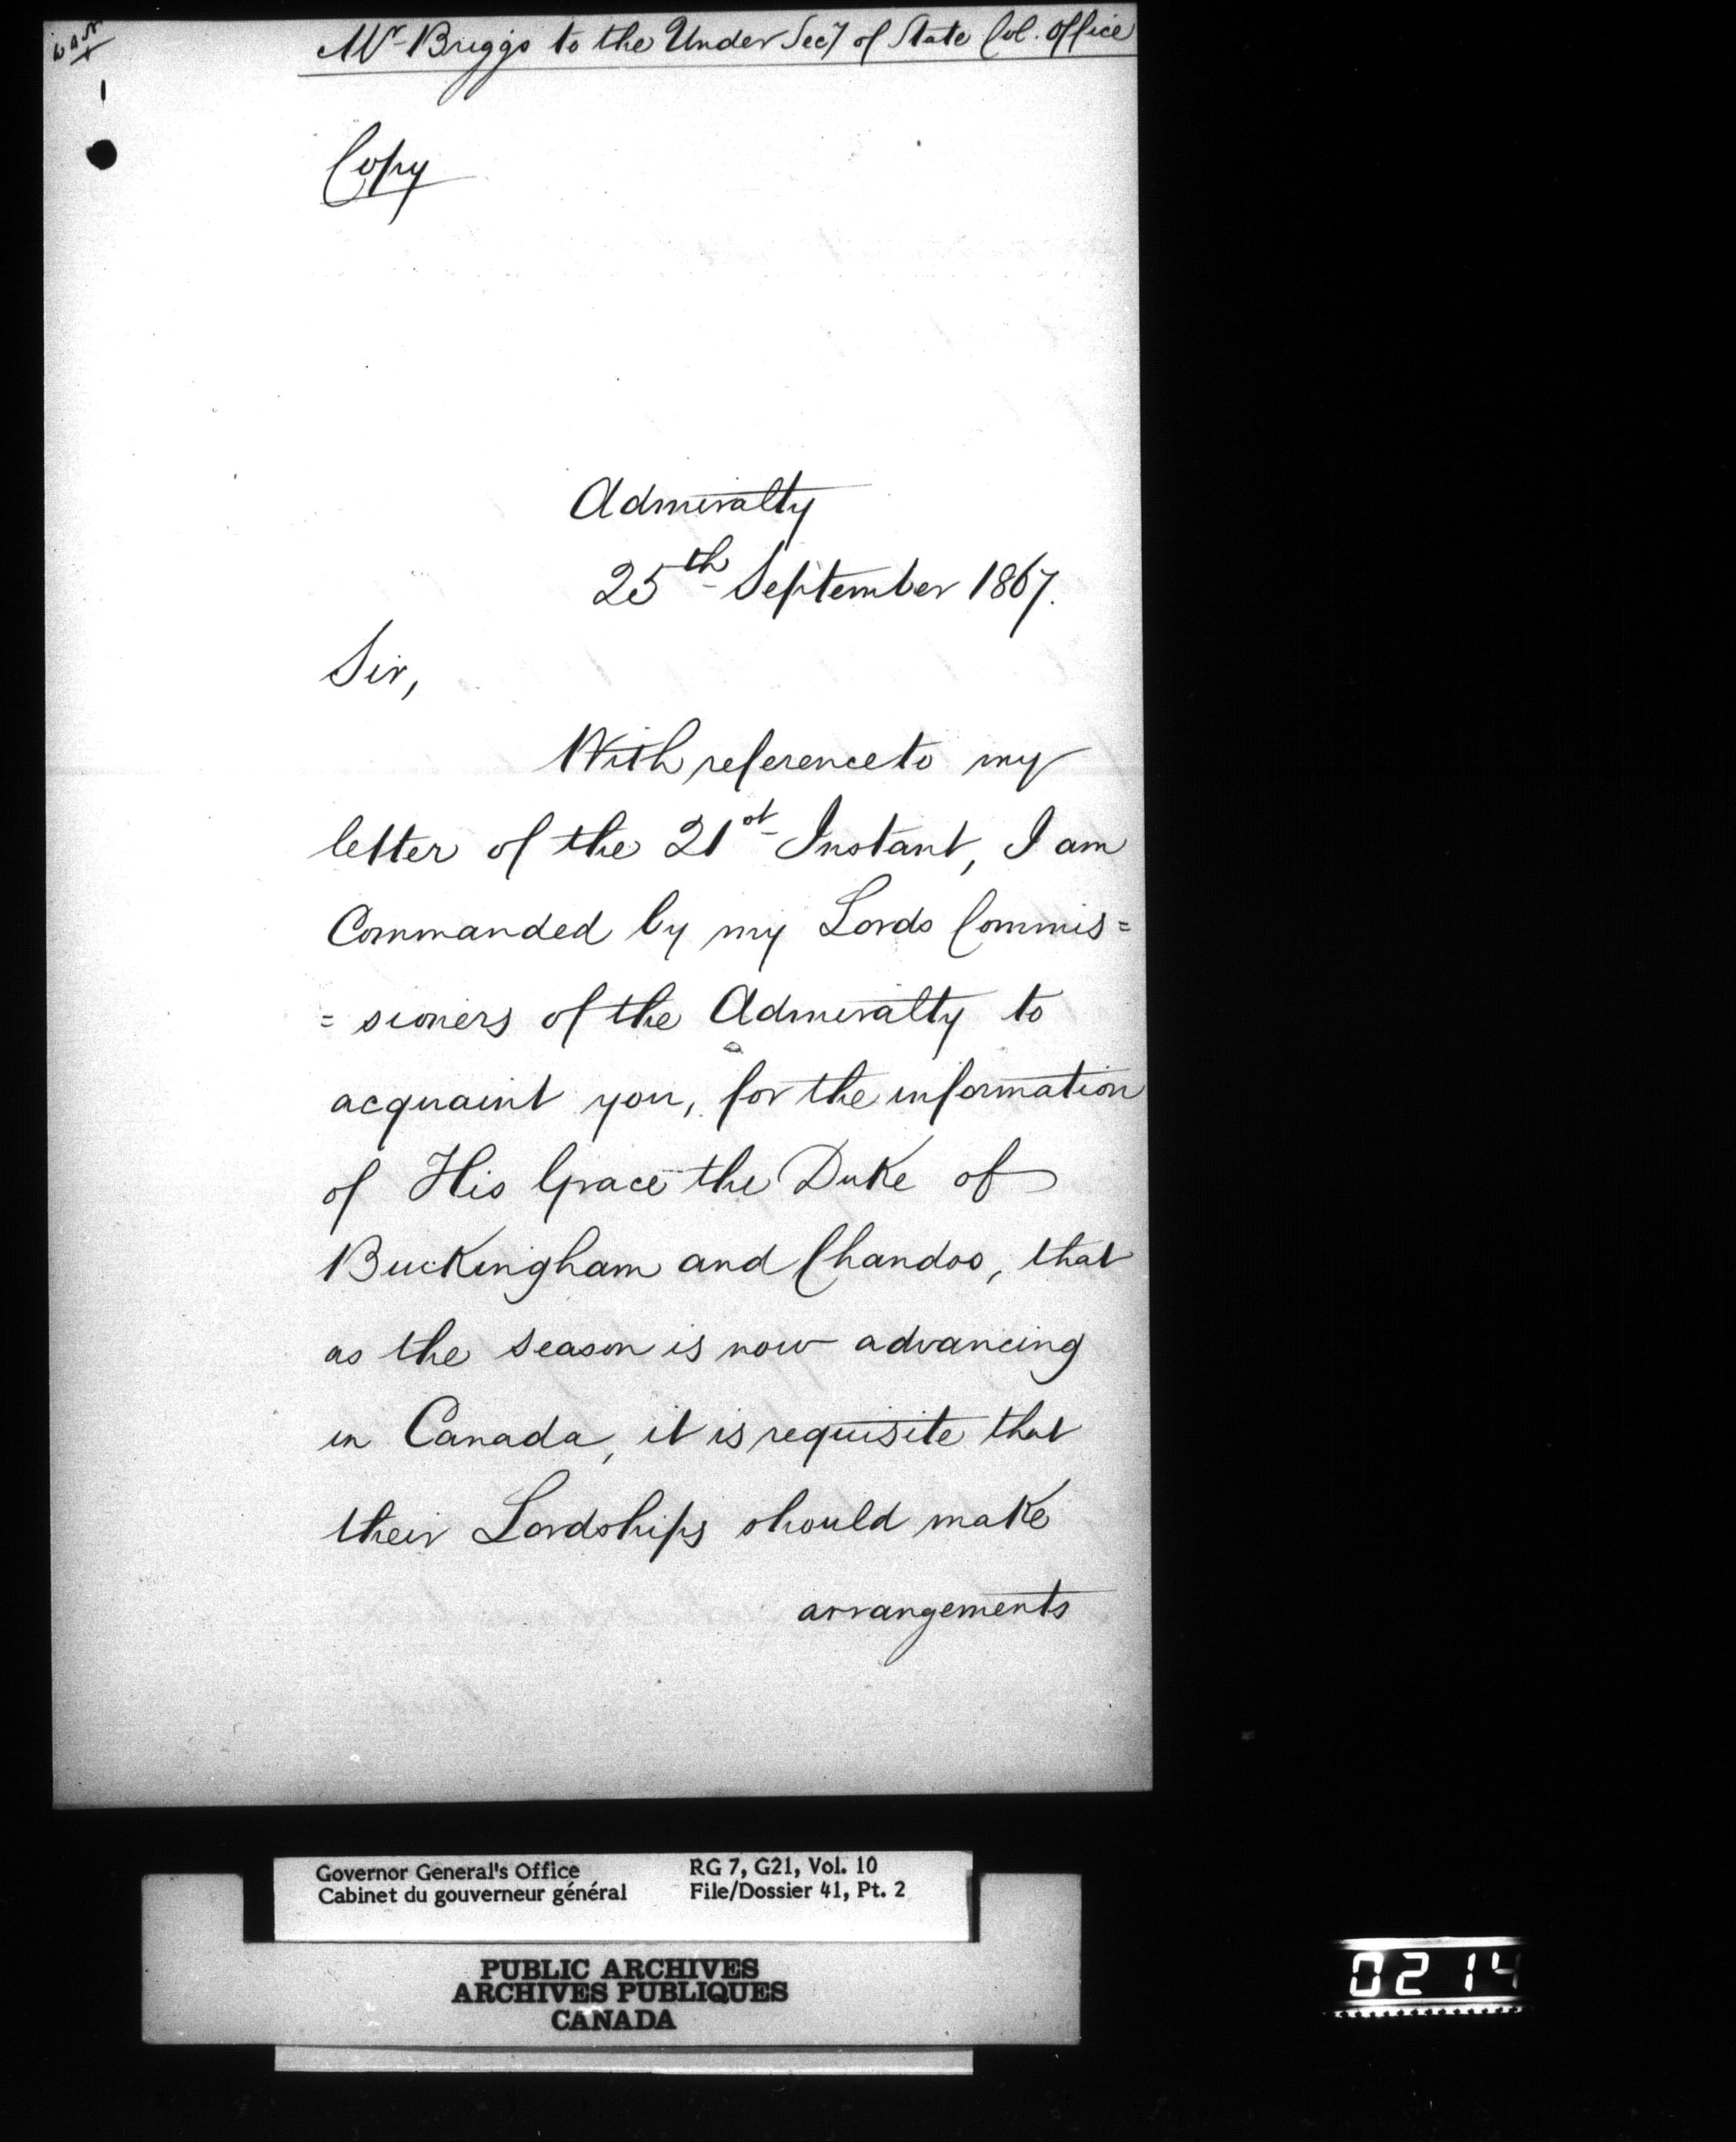 Mr Briggs to the Under Secy of State Col. Office
Copy
Admiralty
25th September 1867.
Sir,
With reference to my
letter of the 21st Instant, I am
Commanded by my Lords Commis=
=sioners of the Admiralty to
acquaint you, for the information
of His Grace the Duke of
Buckingham and Chandos, that
as the season is now advancing
in Canada, it is requisite that
their Lordships should make
arrangements
Governor General's Office
Cabinet du gouverneur général
RG 7, G21, Vol. 10
File/Dossier 41, Pt. 2
PUBLIC ARCHIVES
ARCHIVES PUBLIQUES
CANADA
0214